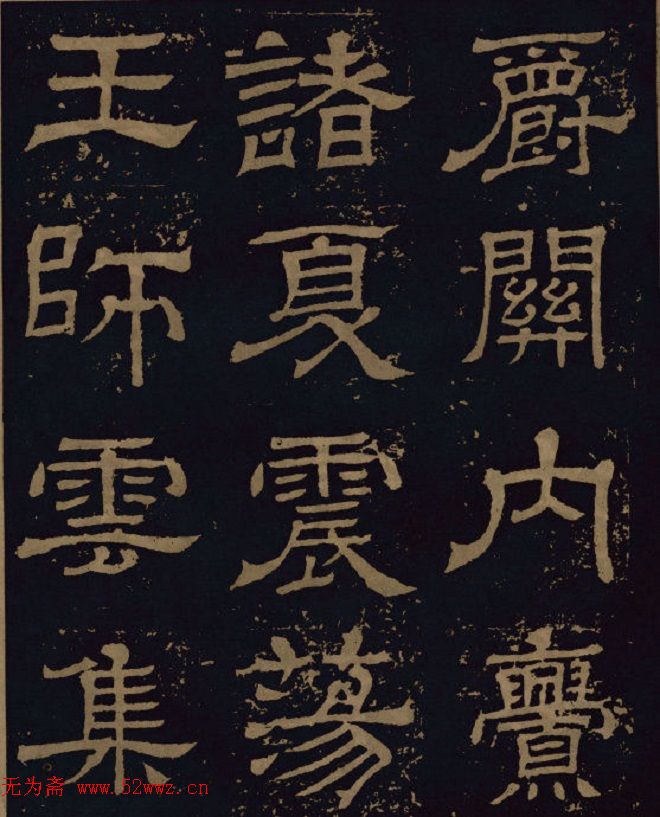 爵關內
諸夏震蕩
王師雲集
无为斋 www.52wwz.cn